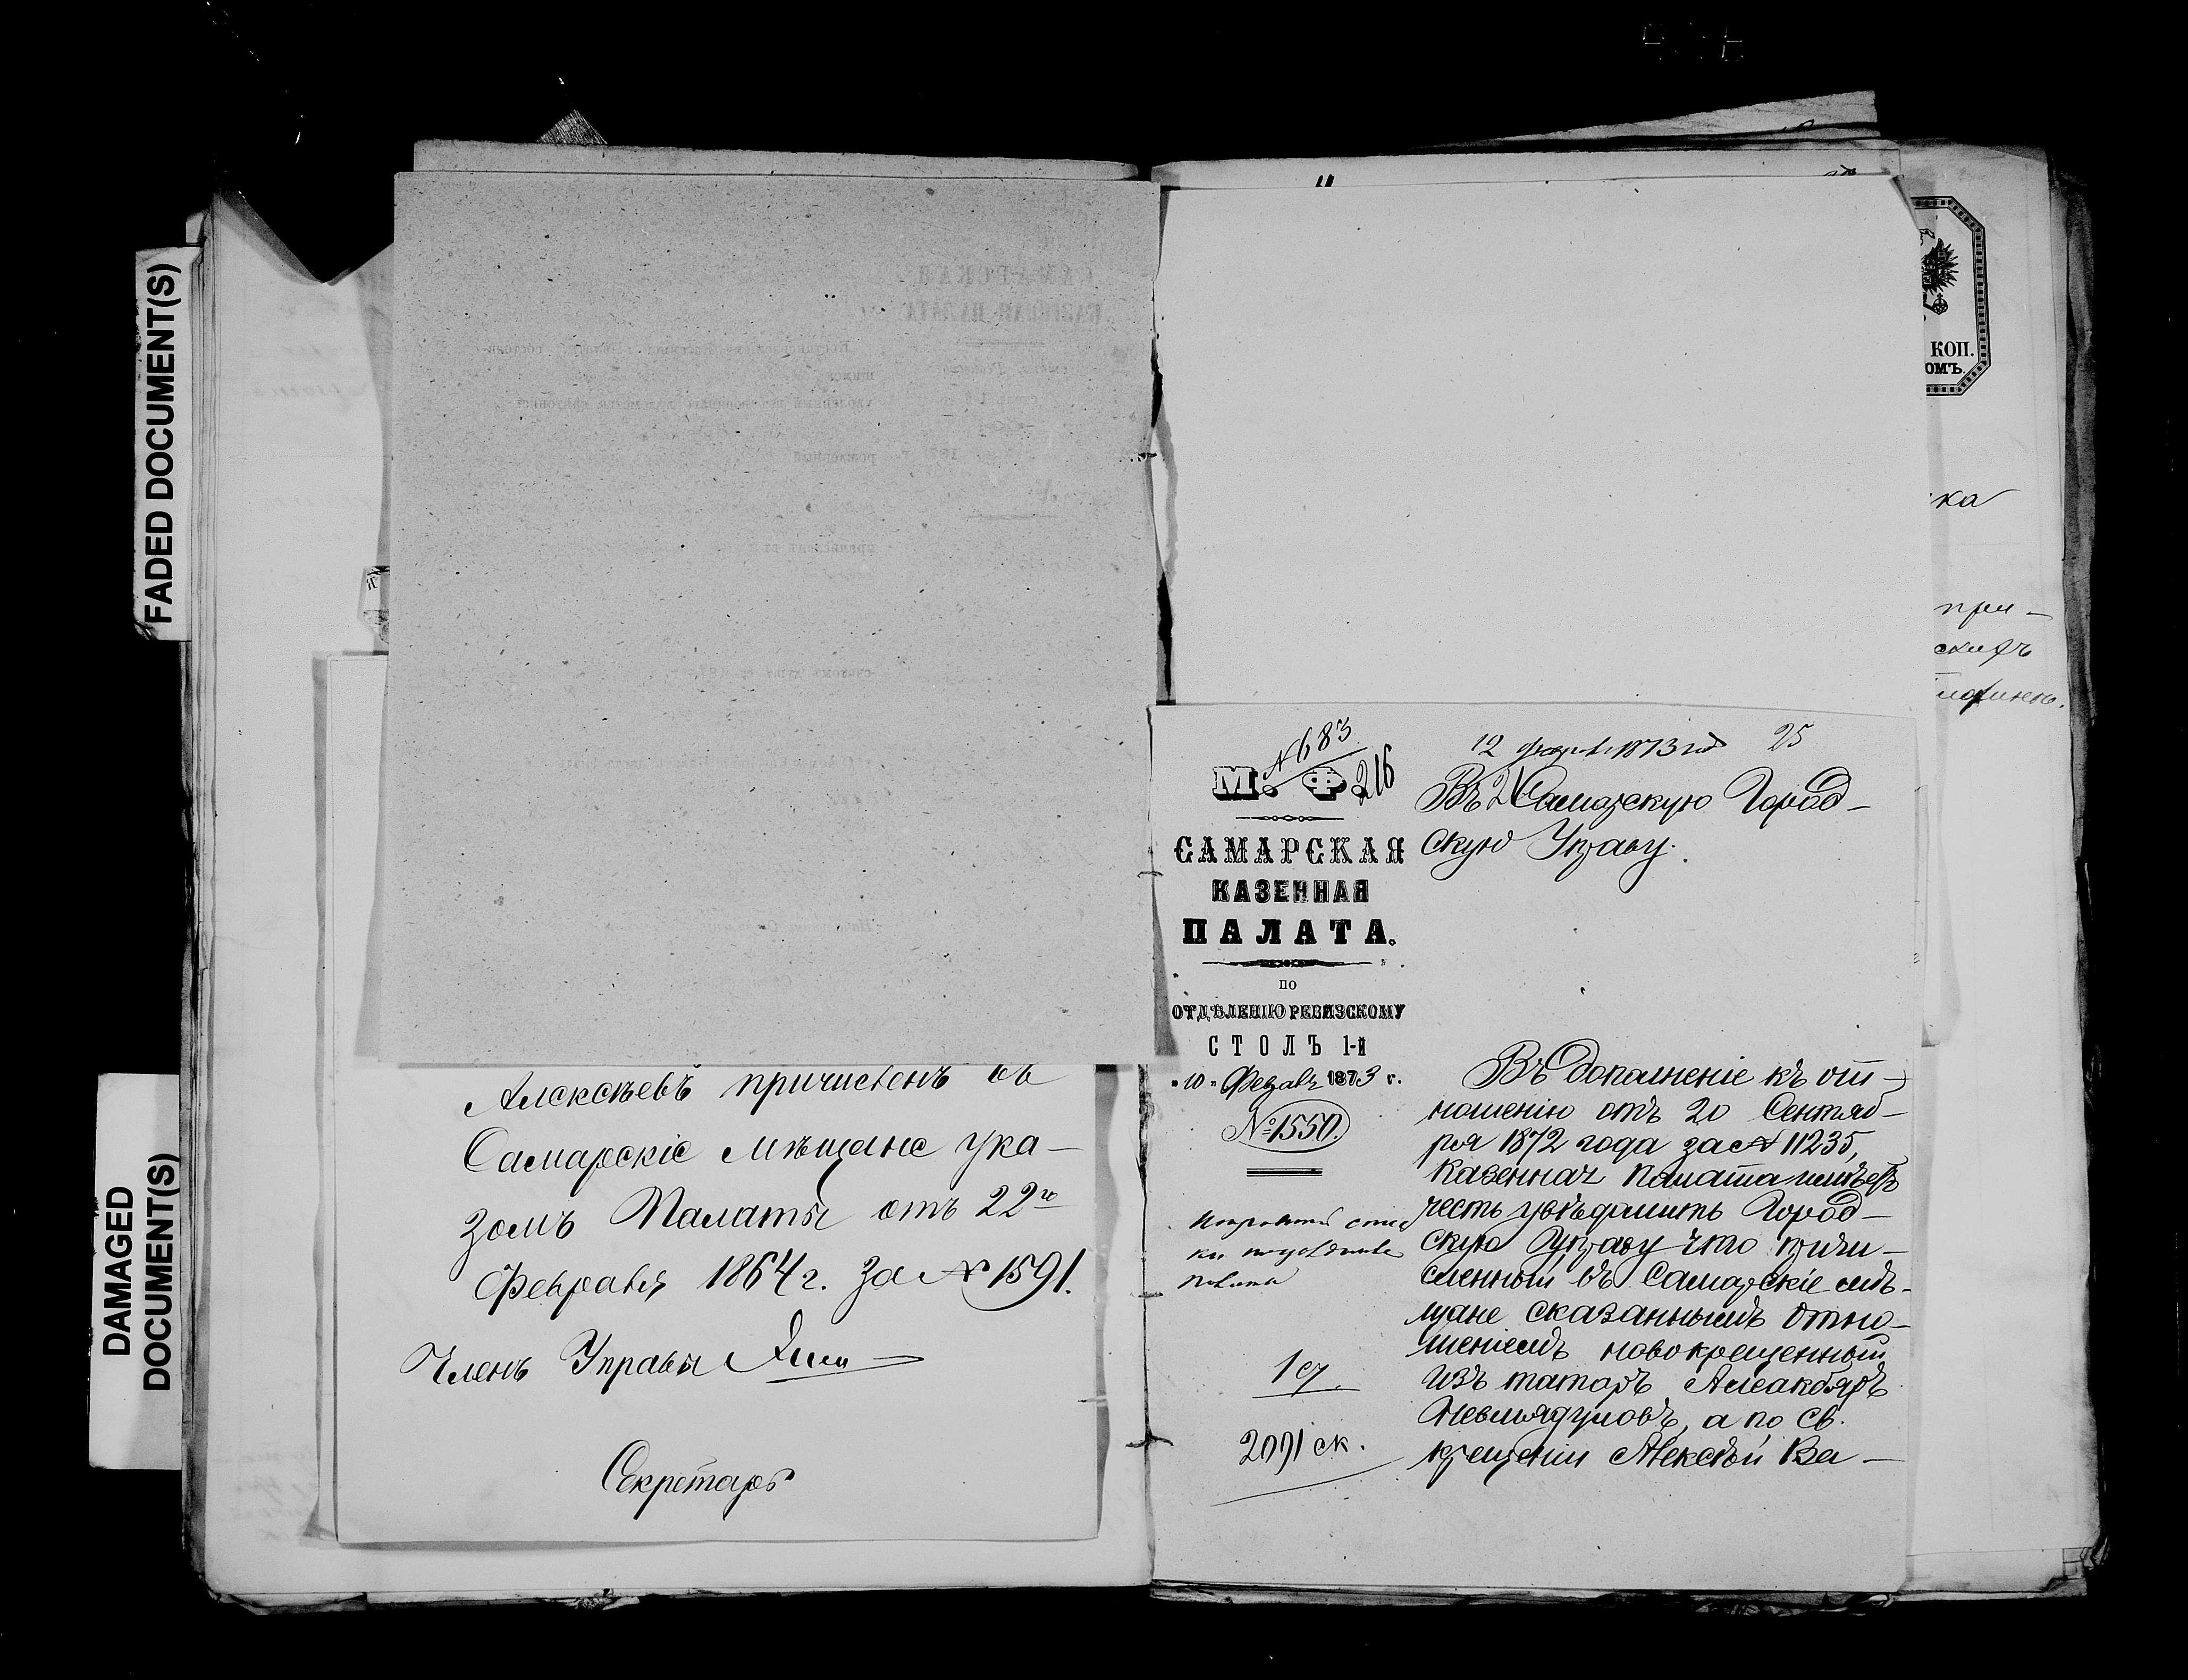 FADED DOCUMENT(S)
DAMAGED
DOCUMENT(S)
Алексѣевъ причисленъ въ
Самарскіе мѣщане ука-
зомъ Палаты отъ 22го
Февраля 1864 г. за № 1591.
Членъ Управы
Секретарь
№ 683
М. Ф.
216
САМАРСКАЯ
КАЗЕННАЯ
ПАЛАТА.
ПО
ОТДѢЛЕНІЮ РЕВИЗСКОМУ
СТОЛЪ 1-й
"10" Февраля 1873 г.
№ 1550.
1 ч.
2091 ск.
12 февр. 1873 года 25
Въ Самарскую Город-
скую Управу.
Въ дополненіе къ от-
ношенію отъ 20 Сентяб-
ря 1872 года за № 11235,
Казенная Палата имѣетъ
честь увѣдомить Город-
скую Управу что причи-
сленный въ Самарскіе мѣ-
щане сказаннымъ отно-
шеніемъ новокрещенный
изъ татаръ
а по св.
крещеніи Алексѣй Ва-
КОП.
ОМЪ.
ка
при-
скихъ